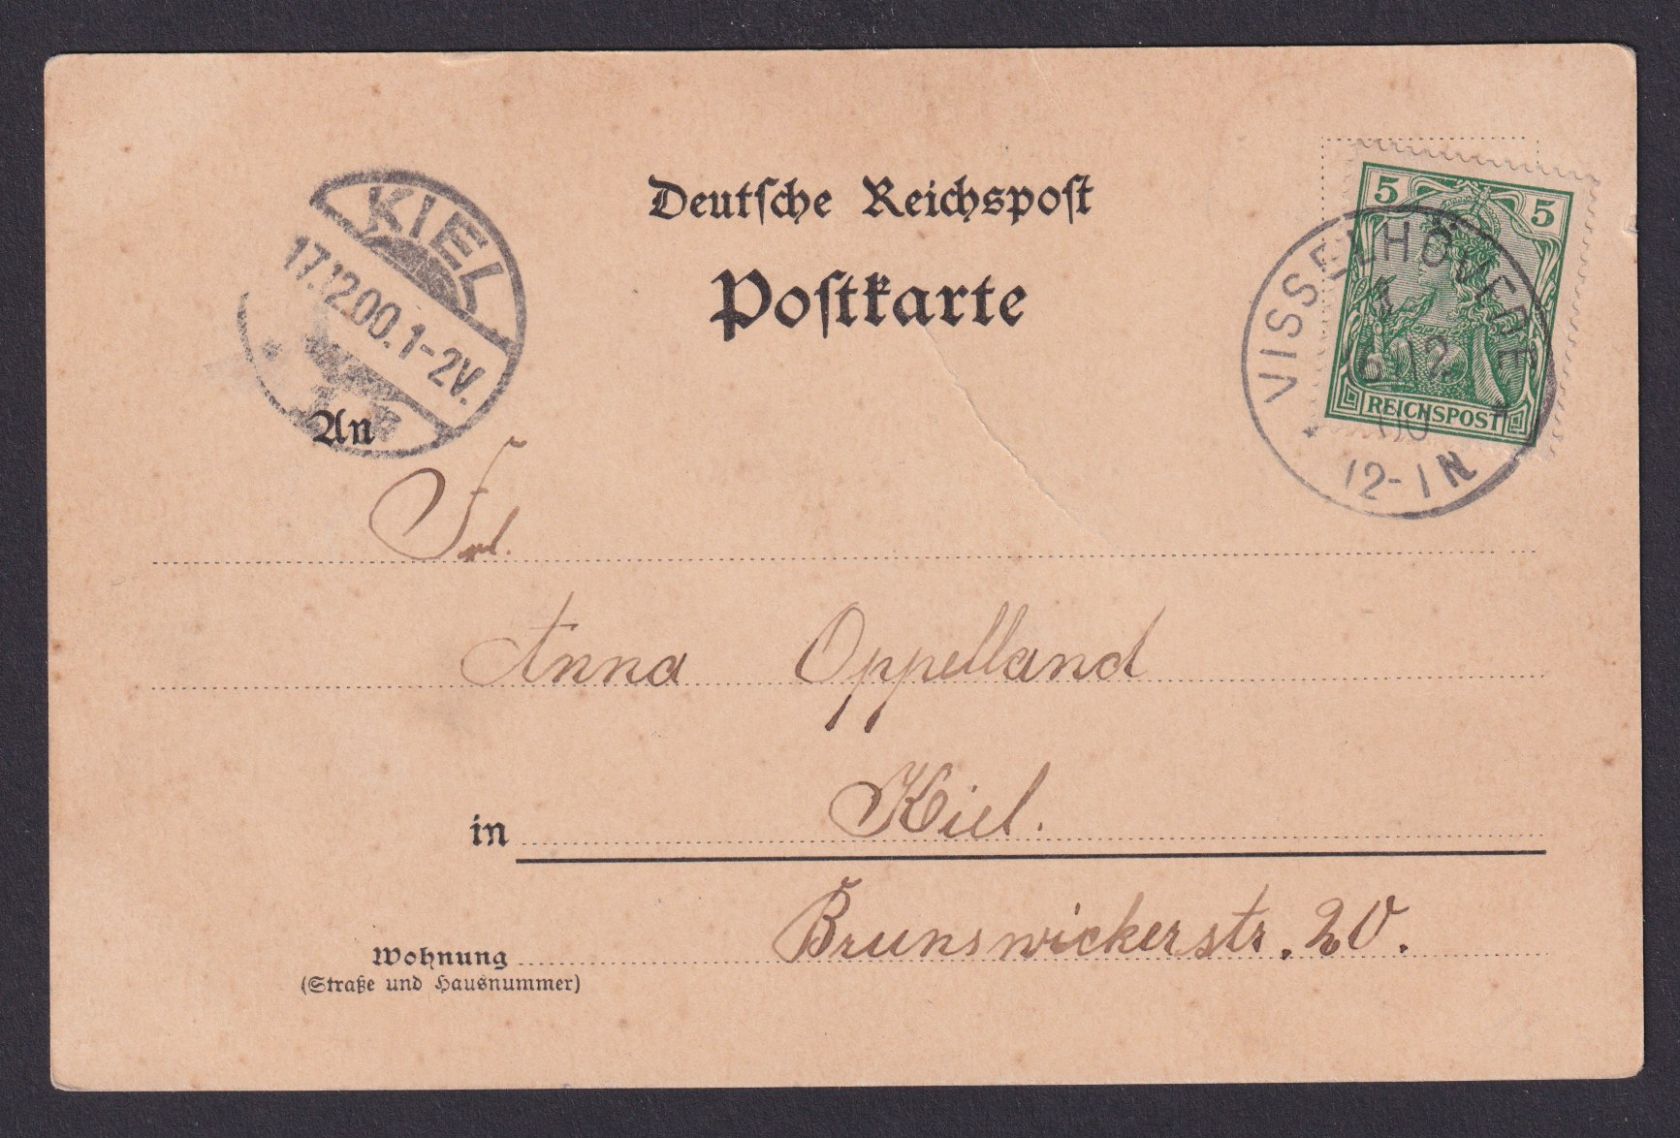 Deutsche Reichspost
Postkarte
KIEL
17.12.00. 1-2V.
5 5
REICHSPOST
VISSELHÖVEDE
12-1N
An
Frl.
Anna Oppelland
in Kiel.
Wohnung Brunswickerstr. 20.
(Straße und Hausnummer)